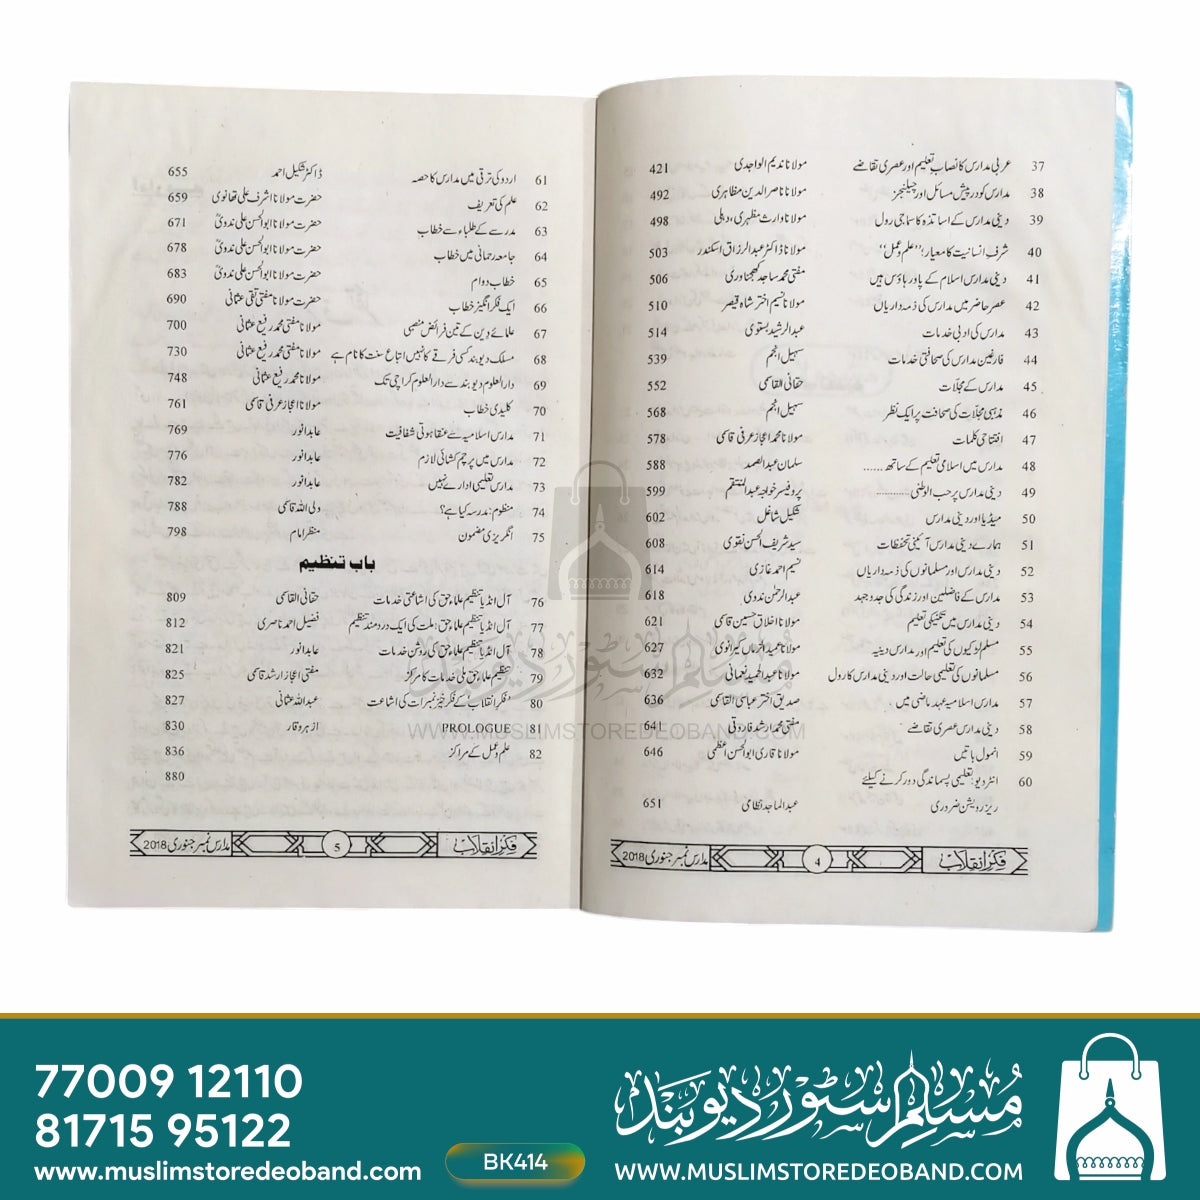 37 عربی مدارس کا نصاب تعلیم اور عصری تقاضے مولانا ندیم الواجدی 421
38 مدارس کو درپیش مسائل اور چیلنجز مولانا ناصر الدین مظاہری 492
39 دینی مدارس کے اساتذہ کا سماجی رول مولانا وارث مظہری، دہلی 498
40 شرف انسانیت کا معیار: ''علم و عمل'' مولانا ڈاکٹر عبدالرزاق اسکندر 503
41 دینی مدارس اسلام کے پاور ہاؤس ہیں مفتی محمد ساجد کھجناوری 506
42 عصر حاضر میں مدارس کی ذمہ داریاں مولانا نسیم اختر شاہ قیصر 510
43 مدارس کی ادبی خدمات عبدالرشید بستوی 514
44 فارغین مدارس کی صحافتی خدمات سہیل انجم 539
45 مدارس کے مجلّات حقانی القاسمی 552
46 مذہبی مجلّات کی صحافت پر ایک نظر سہیل انجم 568
47 افتتاحی کلمات مولانا محمد اعجاز عرفی قاسمی 578
48 مدارس میں اسلامی تعلیم کے ساتھ...... سلمان عبدالصمد 588
49 دینی مدارس پر حب الوطنی.......... پروفیسر خواجہ عبدالمنتقم 599
50 میڈیا اور دینی مدارس شکیل شاغل 602
51 ہمارے دینی مدارس آئینی تحفظات سید شریف الحسن نقوی 608
52 دینی مدارس اور مسلمانوں کی ذمہ داریاں نسیم احمد غازی 614
53 مدارس کے فاضلین اور زندگی کی جدوجہد عبدالرحمٰن ندوی 618
54 دینی مدارس میں تکنیکی تعلیم مولانا اخلاق حسین قاسمی 621
55 مسلم لڑکیوں کی تعلیم اور مدارس دینیہ مولانا عمید الزماں کیرانوی 627
56 مسلمانوں کی تعلیمی حالت اور دینی مدارس کا رول مولانا عبدالحمید نعمانی 632
57 مدارس اسلامیہ عہد ماضی میں صدیق اختر عباسی القاسمی 636
58 دینی مدارس عصری تقاضے مفتی محمد ارشد فاروقی 641
59 انمول باتیں مولانا قاری ابوالحسن اعظمی 646
60 انٹرویو: تعلیمی پسماندگی دور کرنے کیلئے
ریزرویشن ضروری عبدالماجد نظامی 651
فکر انقلاب 4 مدارس نمبر جنوری 2018
61 اردو کی ترقی میں مدارس کا حصہ ڈاکٹر شکیل احمد 655
62 علم کی تعریف حضرت مولانا اشرف علی تھانوی 659
63 مدرسے کے طلباء سے خطاب حضرت مولانا ابوالحسن علی ندویؒ 671
64 جامعہ رحمانی میں خطاب حضرت مولانا ابوالحسن علی ندویؒ 678
65 خطاب دوام حضرت مولانا ابوالحسن علی ندویؒ 683
66 ایک فکر انگیز خطاب حضرت مولانا مفتی تقی عثمانی 690
67 علمائے دین کے تین فرائض منصبی مولانا مفتی محمد رفیع عثمانی 700
68 مسلک دیوبند کسی فرقے کا نہیں اتباع سنت کا نام ہے مولانا مفتی محمد رفیع عثمانی 730
69 دارالعلوم دیوبند سے دارالعلوم کراچی تک مولانا محمد رفیع عثمانی 748
70 کلیدی خطاب مولانا اعجاز عرفی قاسمی 761
71 مدارس اسلامیہ سے عنقا ہوتی شفافیت عابد انور 769
72 مدارس میں پرچم کشائی لازم عابد انور 776
73 مدارس تعلیمی ادارے نہیں عابد انور 782
74 منظوم: مدرسہ کیا ہے؟ ولی اللہ قاسمی 788
75 انگریزی مضمون منظر امام 798
باب تنظیم
76 آل انڈیا تنظیم علماء حق کی اشاعتی خدمات حقانی القاسمی 809
77 آل انڈیا تنظیم علماء حق: ملت کی ایک دردمند تنظیم فضیل احمد ناصری 812
78 آل انڈیا تنظیم علماء حق کی روشن خدمات عابد انور 821
79 تنظیم علماء حق ملی خدمات کا مرکز مفتی اعجاز ارشد قاسمی 825
80 'فکر انقلاب' کے فکر خیز نمبرات کی اشاعت عبداللہ عثمانی 827
81 PROLOGUE ازہر وقار 830
82 علم و عمل کے مراکز 836
880
فکر انقلاب 5 مدارس نمبر جنوری 2018
مسلم سٹور دیوبند
WWW.MUSLIMSTOREDEOBAND.COM
77009 12110
81715 95122
www.muslimstoredeoband.com
BK414
مسلم سٹور دیوبند
WWW.MUSLIMSTOREDEOBAND.COM